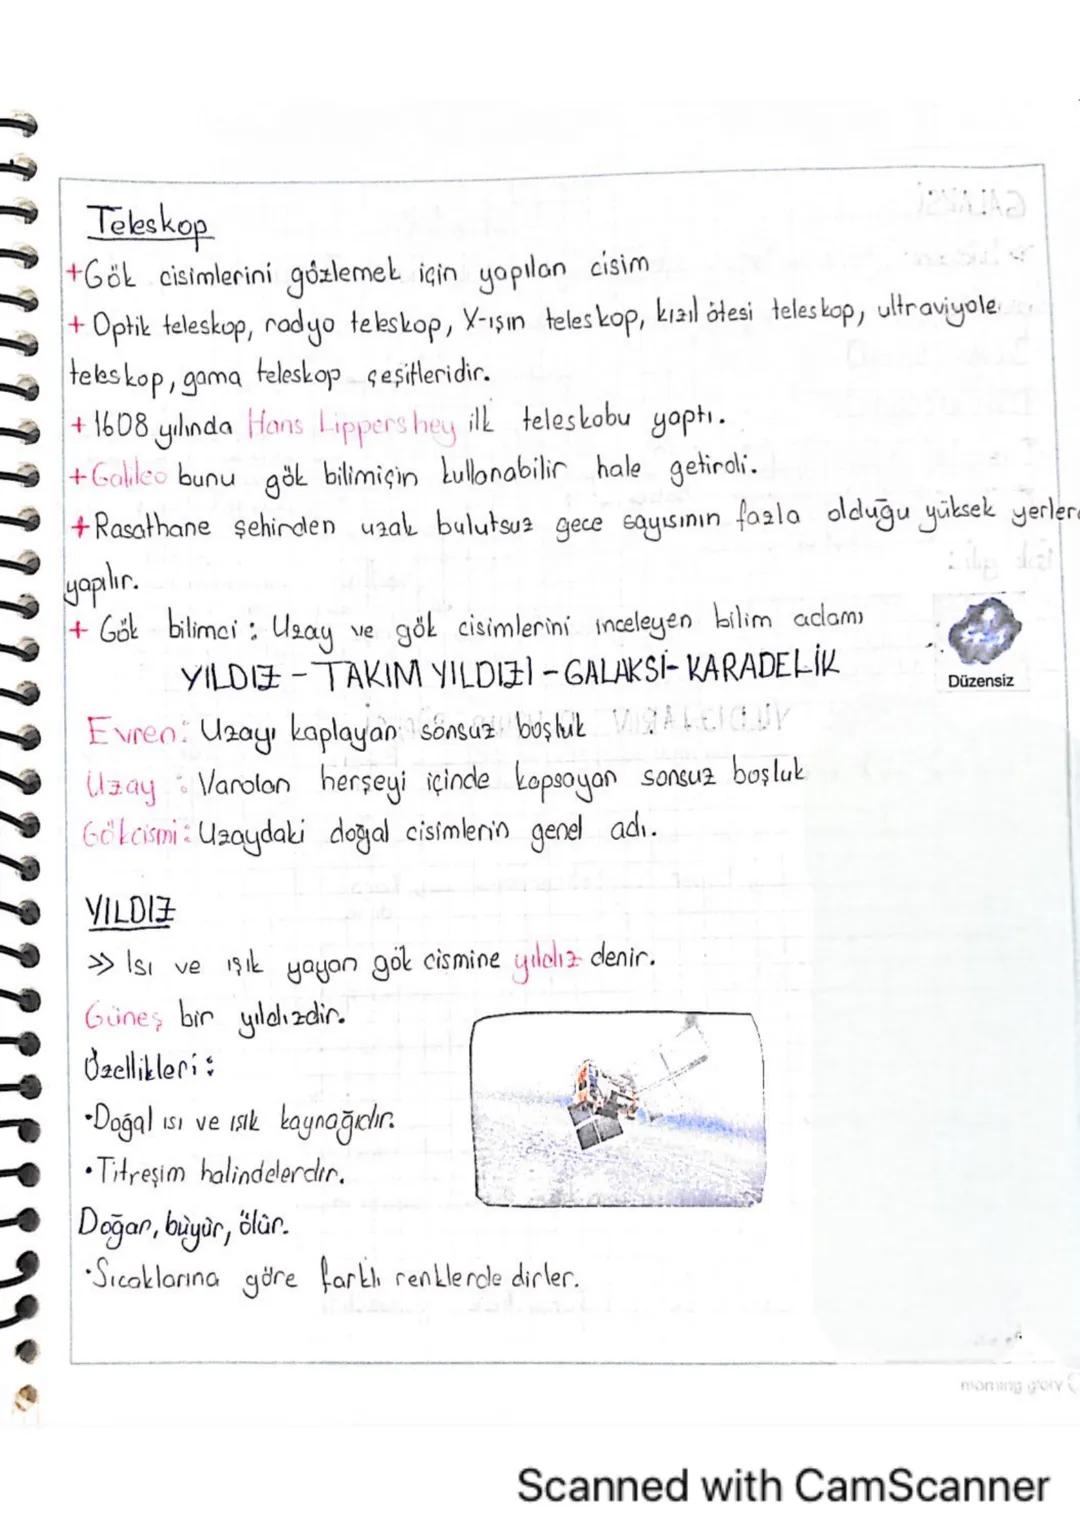 Teleskop
+Gök cisimlerini gözlemek için yapılan cisim
+ Optik teleskop, radyo teleskop, X-ışın teleskop, kızıl ötesi teleskop, ultraviyole
teleskop, gama teleskop çeşitleridir.
+ 1608 yılında Hans Lippershey ilk teleskobu yaptı.
+Galileo bunu gök bilimiçin kullanabilir hale getirdi.
+Rasathane şehirden uzak bulutsuz gece sayısının fazla olduğu yüksek yerler
yapılır.
+ Gök bilimci : Uzay ve gök cisimlerini inceleyen bilim adamı
YILDIZ - TAKIM YILDIZI - GALAKSİ - KARADELİK
Düzensiz
Evren: Uzayı kaplayan sonsuz boşluk
Uzay : Varolan herşeyi içinde kapsayan sonsuz boşluk
Gökcismi: Uzaydaki doğal cisimlerin genel adı.
YILDIZ
>> Isı ve ışık yayan gök cismine yıldız denir.
Güneş bir yıldızdir.
Özellikleri:
•Doğal ısı ve ışık kaynağıdır.
•Titreşim halindelerdir.
Doğar, büyür, ölür.
•Sıcaklarına göre farklı renklerde dirler.
morning glory
Scanned with CamScanner